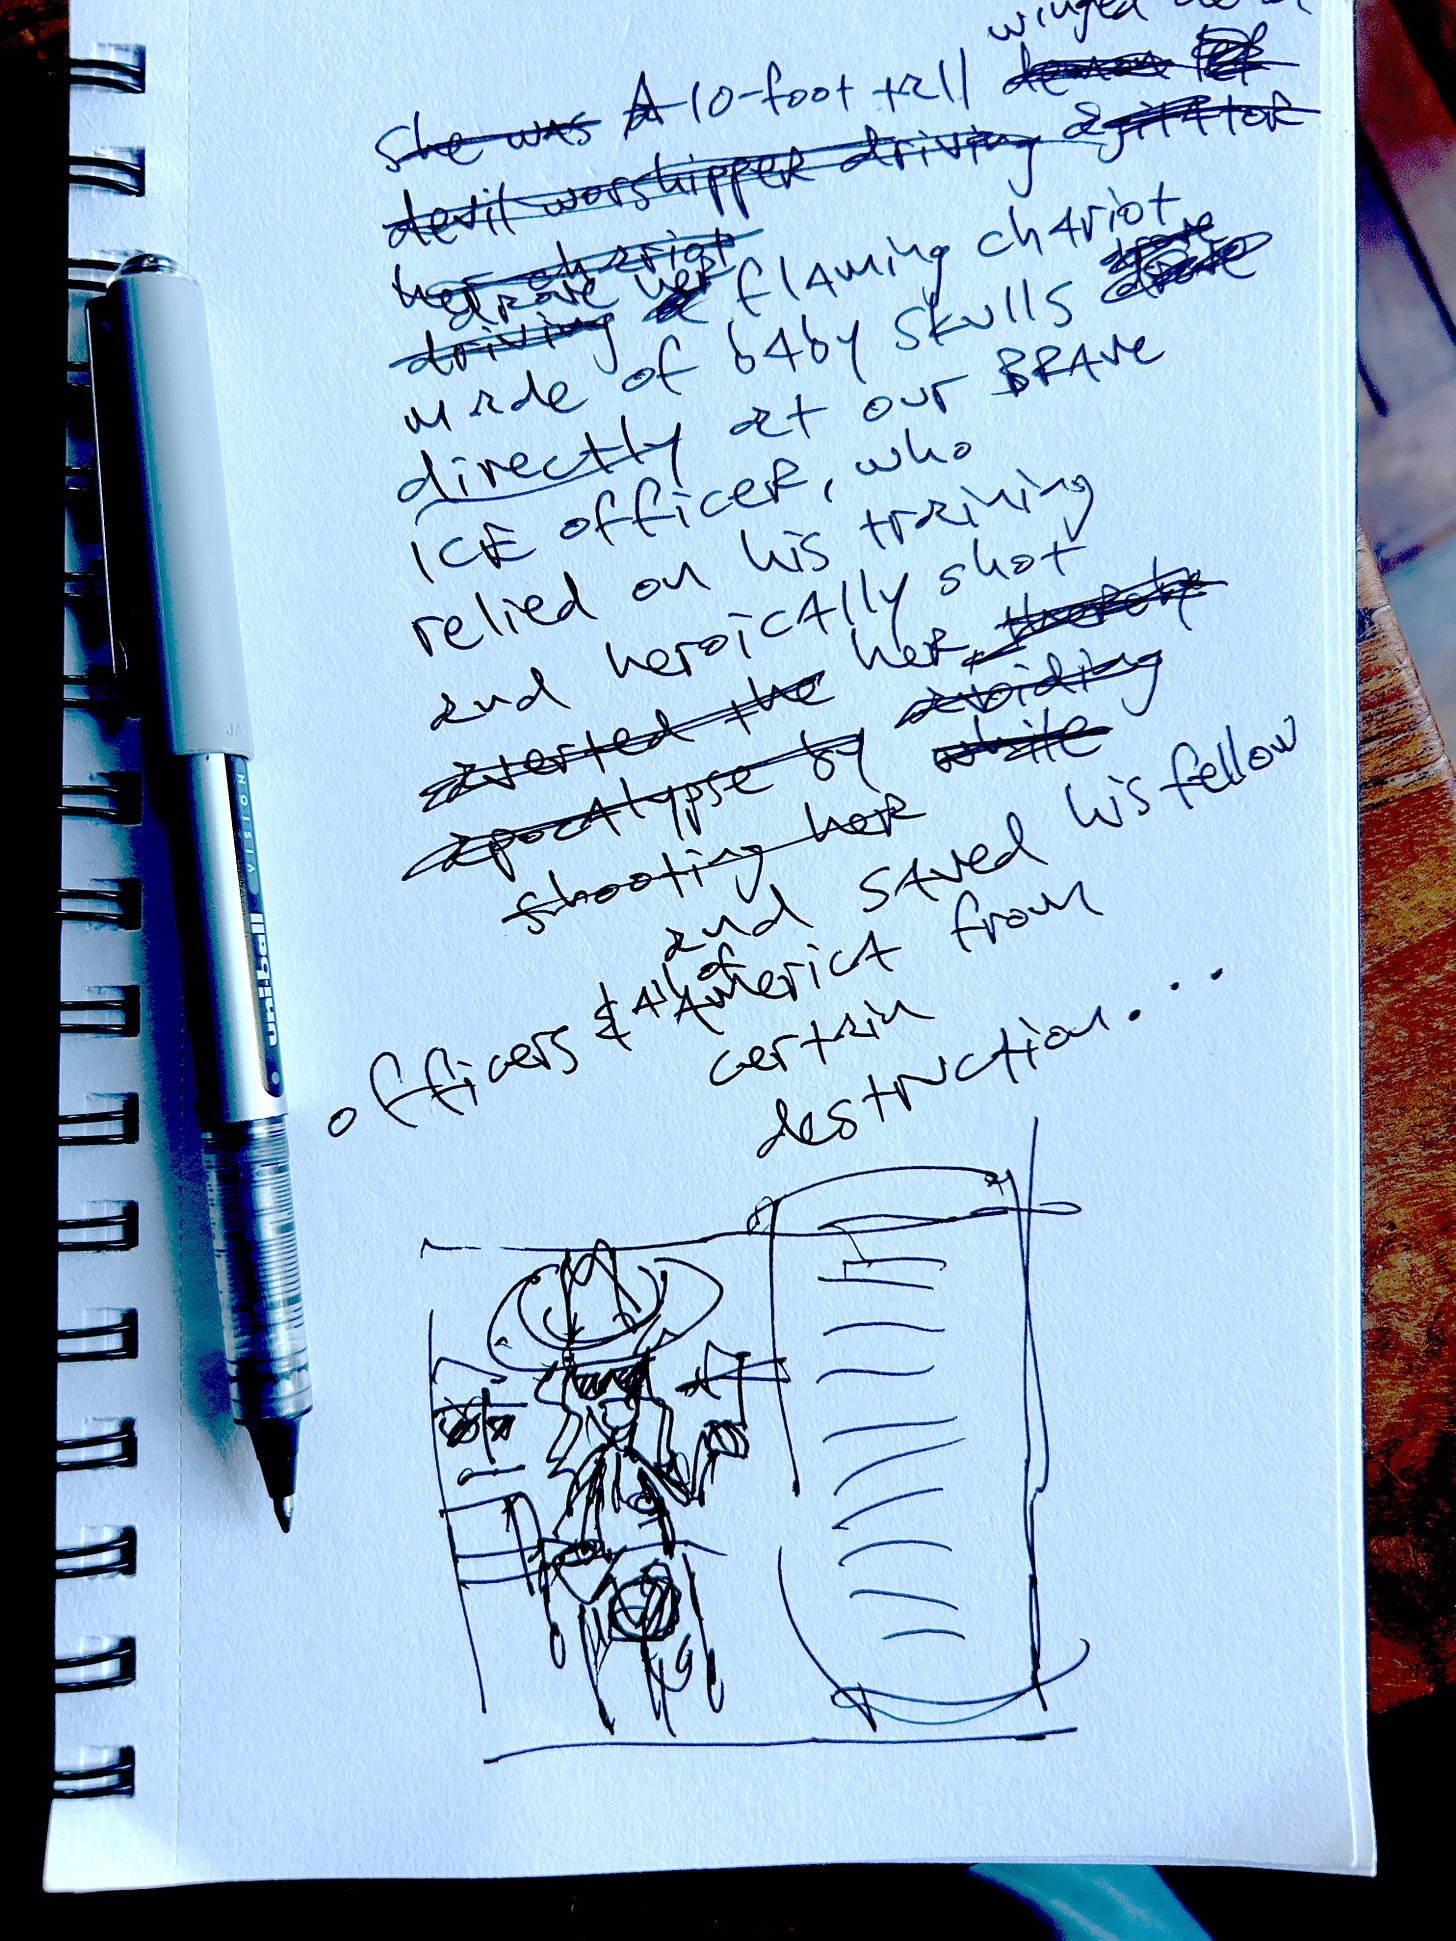 winged
She was A 10-foot tall demon
devil worshipper driving agitator
her chariot
drove her
driving a flaming chariot
made of baby skulls drove
directly at our BRAVe
ICE officer, who
relied on his training
and heroically shot
averted the her, thereby
apocalypse by avoiding
shooting her while
and saved his fellow
officers & All of America from
certain
destruction...
uni-ball VISION